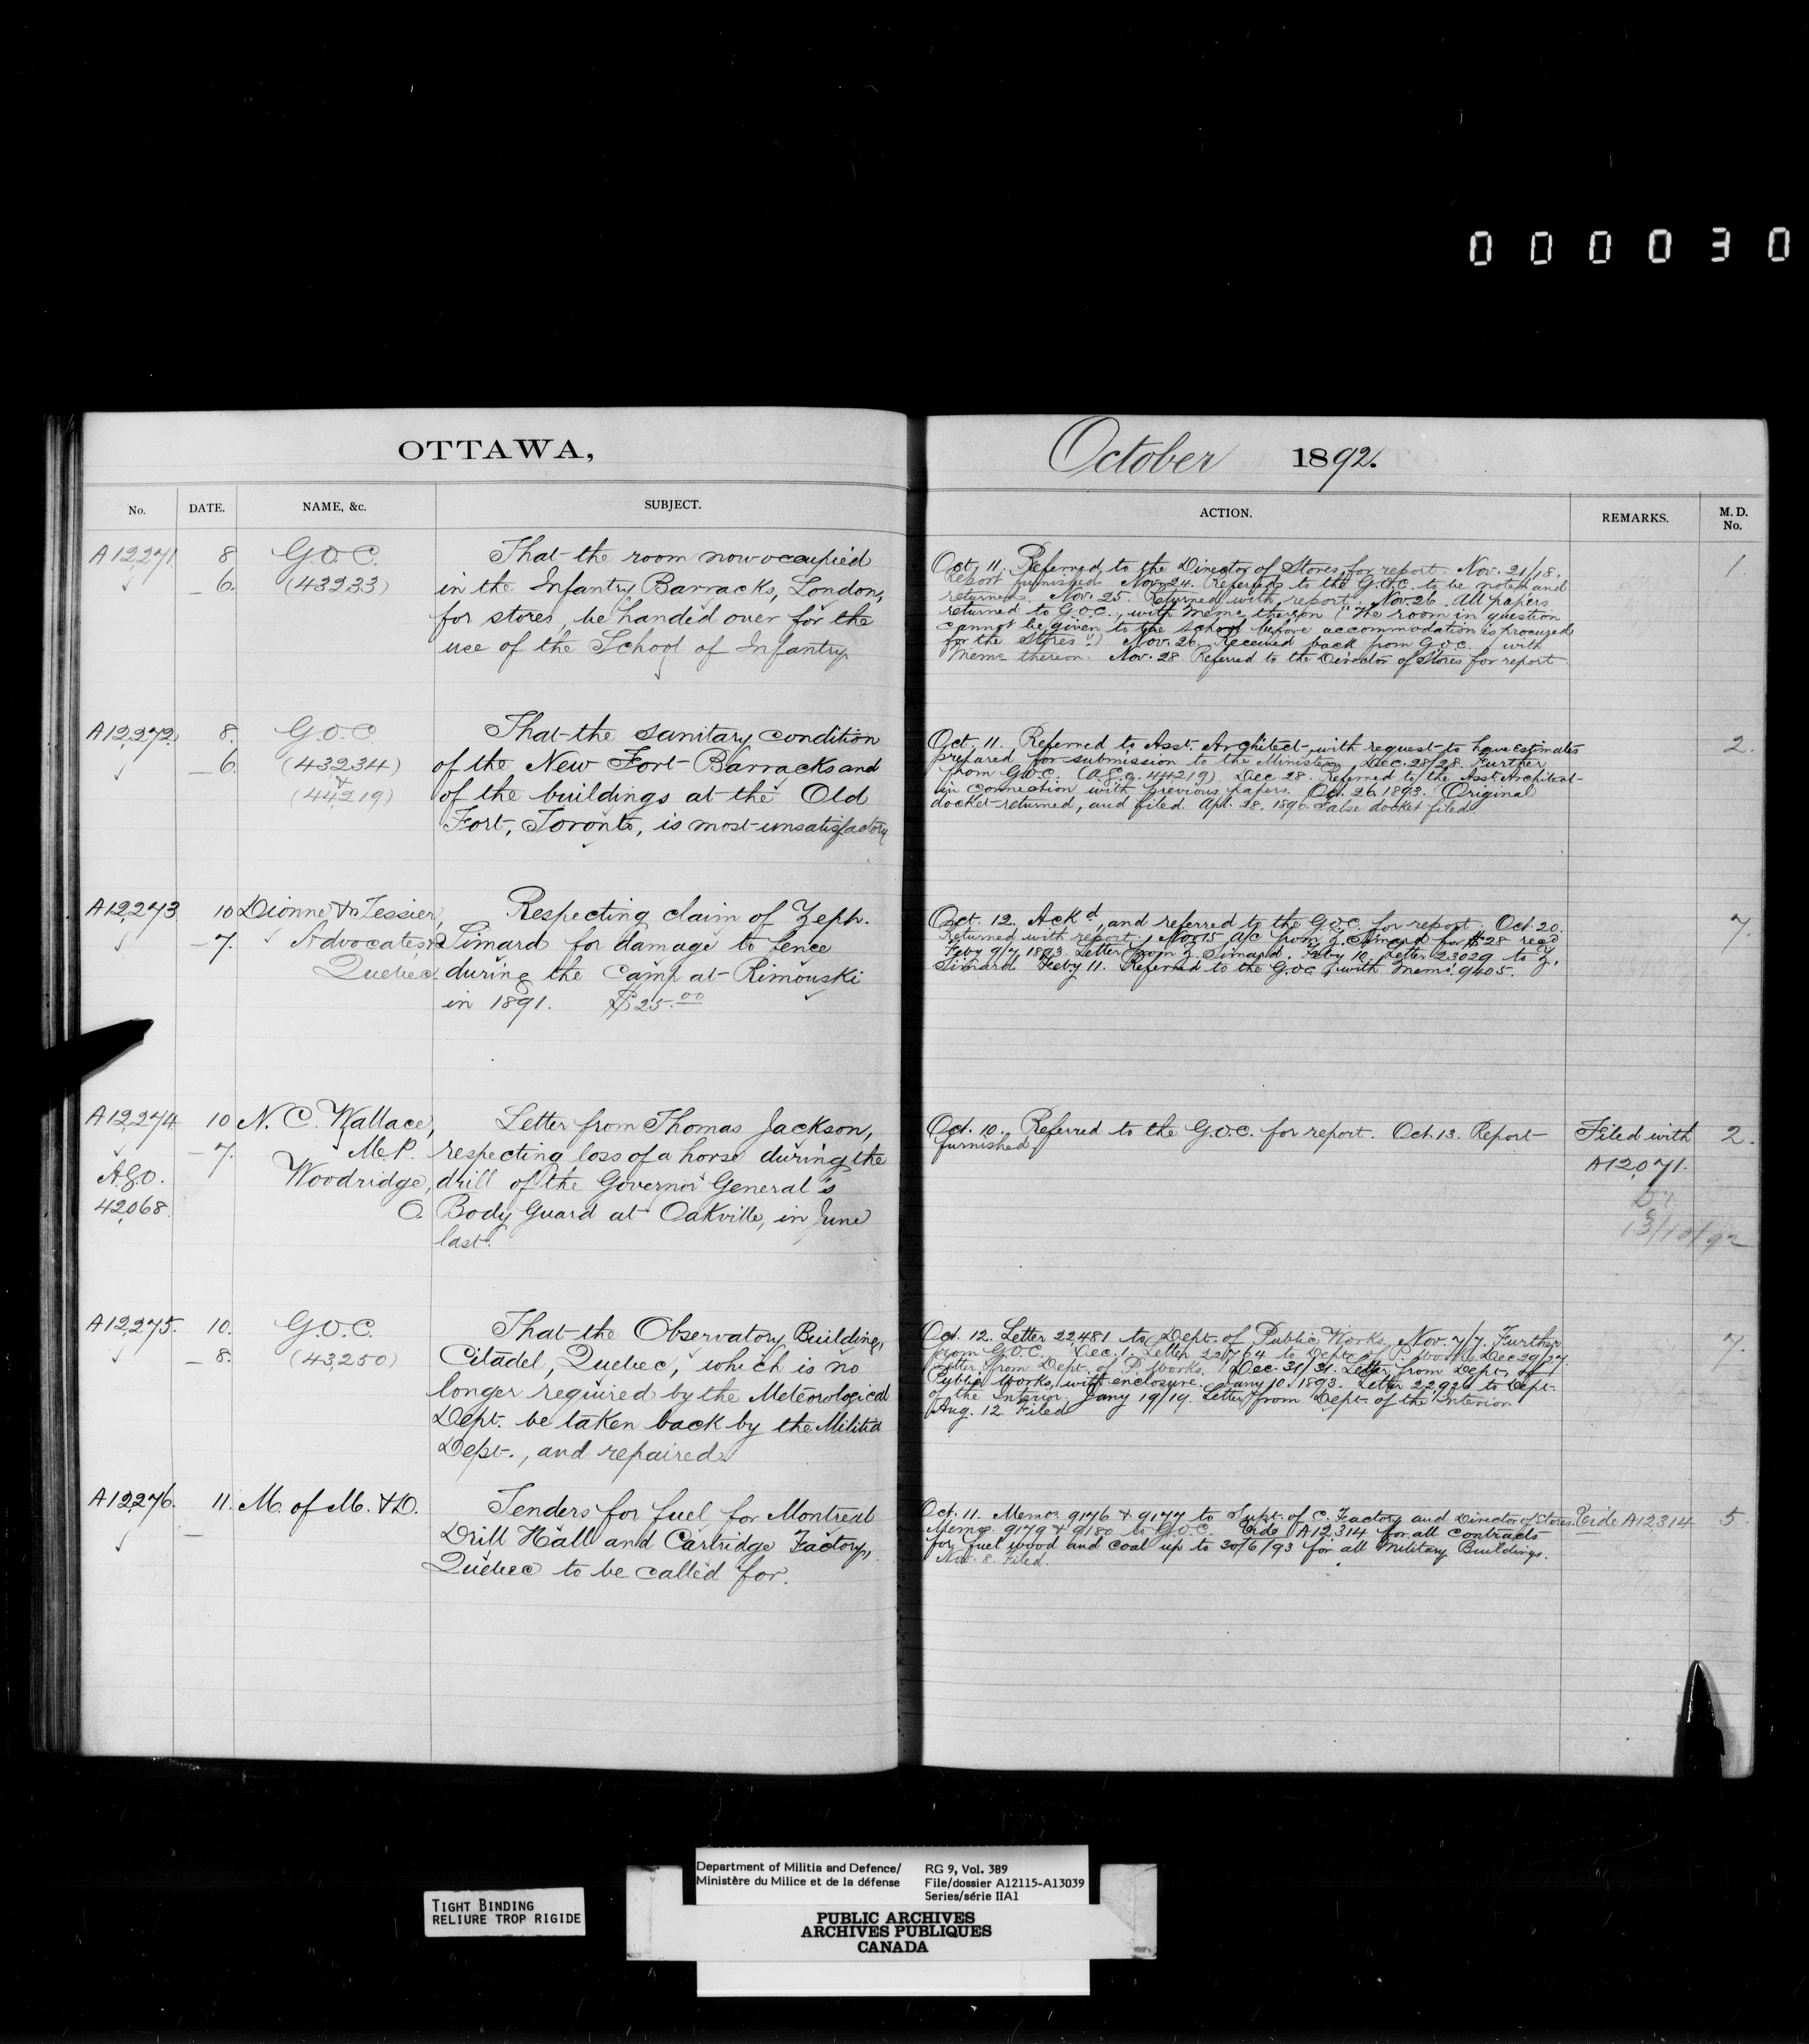 000030
OTTAWA,
No. DATE. NAME, &c. SUBJECT.
A12,271 8 G.O.C. That the room now occupied
6. (43233) in the Infantry Barracks, London,
for stores, be handed over for the
use of the School of Infantry.
A12,272 8. G.O.C. That the sanitary condition
6. (43234) of the New Fort Barracks and
&
(44219) of the buildings at the Old
Fort, Toronto, is most unsatisfactory
A12,273 10 Dionne & Tessier, Respecting claim of Zeph.
7. Advocates, Simard for damage to fence
Quebec during the Camp at Rimouski
in 1891. $25.00
A12,274 10 N. C. Wallace, Letter from Thomas Jackson,
7. M.P. respecting loss of a horse during the
A.G.O. Woodridge, drill of the Governor General's
42068. O. Body Guard at Oakville, in June
last.
A12,275. 10. G.O.C. That the Observatory Building,
8. (43,250) Citadel, Quebec, which is no
longer required by the Meteorological
Dept. be taken back by the Militia
Dept., and repaired.
A12,276. 11. M. of M. & D. Tenders for fuel for Montreal
Drill Hall and Cartridge Factory,
Quebec to be called for.
October 1892.
ACTION. REMARKS. M. D. No.
Oct. 11. Referred to the Director of Stores for report. Nov. 21/18. 1.
Report furnished. Nov. 24. Referred to the G.O.C. to be noted and
returned. Nov. 25. Returned with report. Nov. 26. All papers
returned to G.O.C., with memo thereon ("The room in question
cannot be given to the school before accommodation is procured
for the Stores".) Nov. 26. Received back from G.O.C., with
Memo thereon. Nov. 28 Referred to the Director of Stores for report
Oct. 11. Referred to Asst. Architect with request to have estimates 2.
prepared for submission to the Minister. Dec. 28/28. Further
from G.O.C. (A.G.O. 44219). Dec 28. Referred to the Asst. Architect
in connection with previous papers. Oct. 26. 1893. Original
docket returned, and filed. Apr. 28. 1896. False docket filed.
Oct. 12. Ackd, and referred to the G.O.C. for report. Oct. 20. 7.
Returned with report. Nov 15 a/c from Z. Simard for $28 recd
Feby 9/7. 1893. Letter from Z. Simard. Feby 10. Letter 23029 to Z.
Simard Feby 11. Referred to the G.O.C. with Memo. 9405.
Oct. 10. Referred to the G.O.C. for report. Oct. 13. Report Filed with 2.
furnished. A12,071.
13/10/92
Oct. 12. Letter 22481 to Dept. of Public Works. Nov. 7/7. Further 7.
from G.O.C. Dec. 1. Letter 22764 to Dept. of P. Works. Dec 29/27.
Letter from Dept. of P. Works. Dec. 31/31. Letter from Dept. of
Public Works, with enclosure. Jany 10. 1893. Letter 22926 to Dept.
of the Interior. Jany 19/19. Letter from Dept. of the Interior
Aug. 12. Filed
Oct. 11. Memos 9176 & 9177 to Supt. of C. Factory and Director of Stores. Vide A12314 5.
Memos. 9179 & 9180 to G.O.C. Vide A12314 for all contracts
for fuel wood and coal up to 30/6/93 for all Military Buildings.
Nov. 8. Filed.
TIGHT BINDING
RELIURE TROP RIGIDE
Department of Militia and Defence/
Ministère du Milice et de la défense
RG 9, Vol. 389
File/dossier A12115-A13039
Series/série IIA1
PUBLIC ARCHIVES
ARCHIVES PUBLIQUES
CANADA